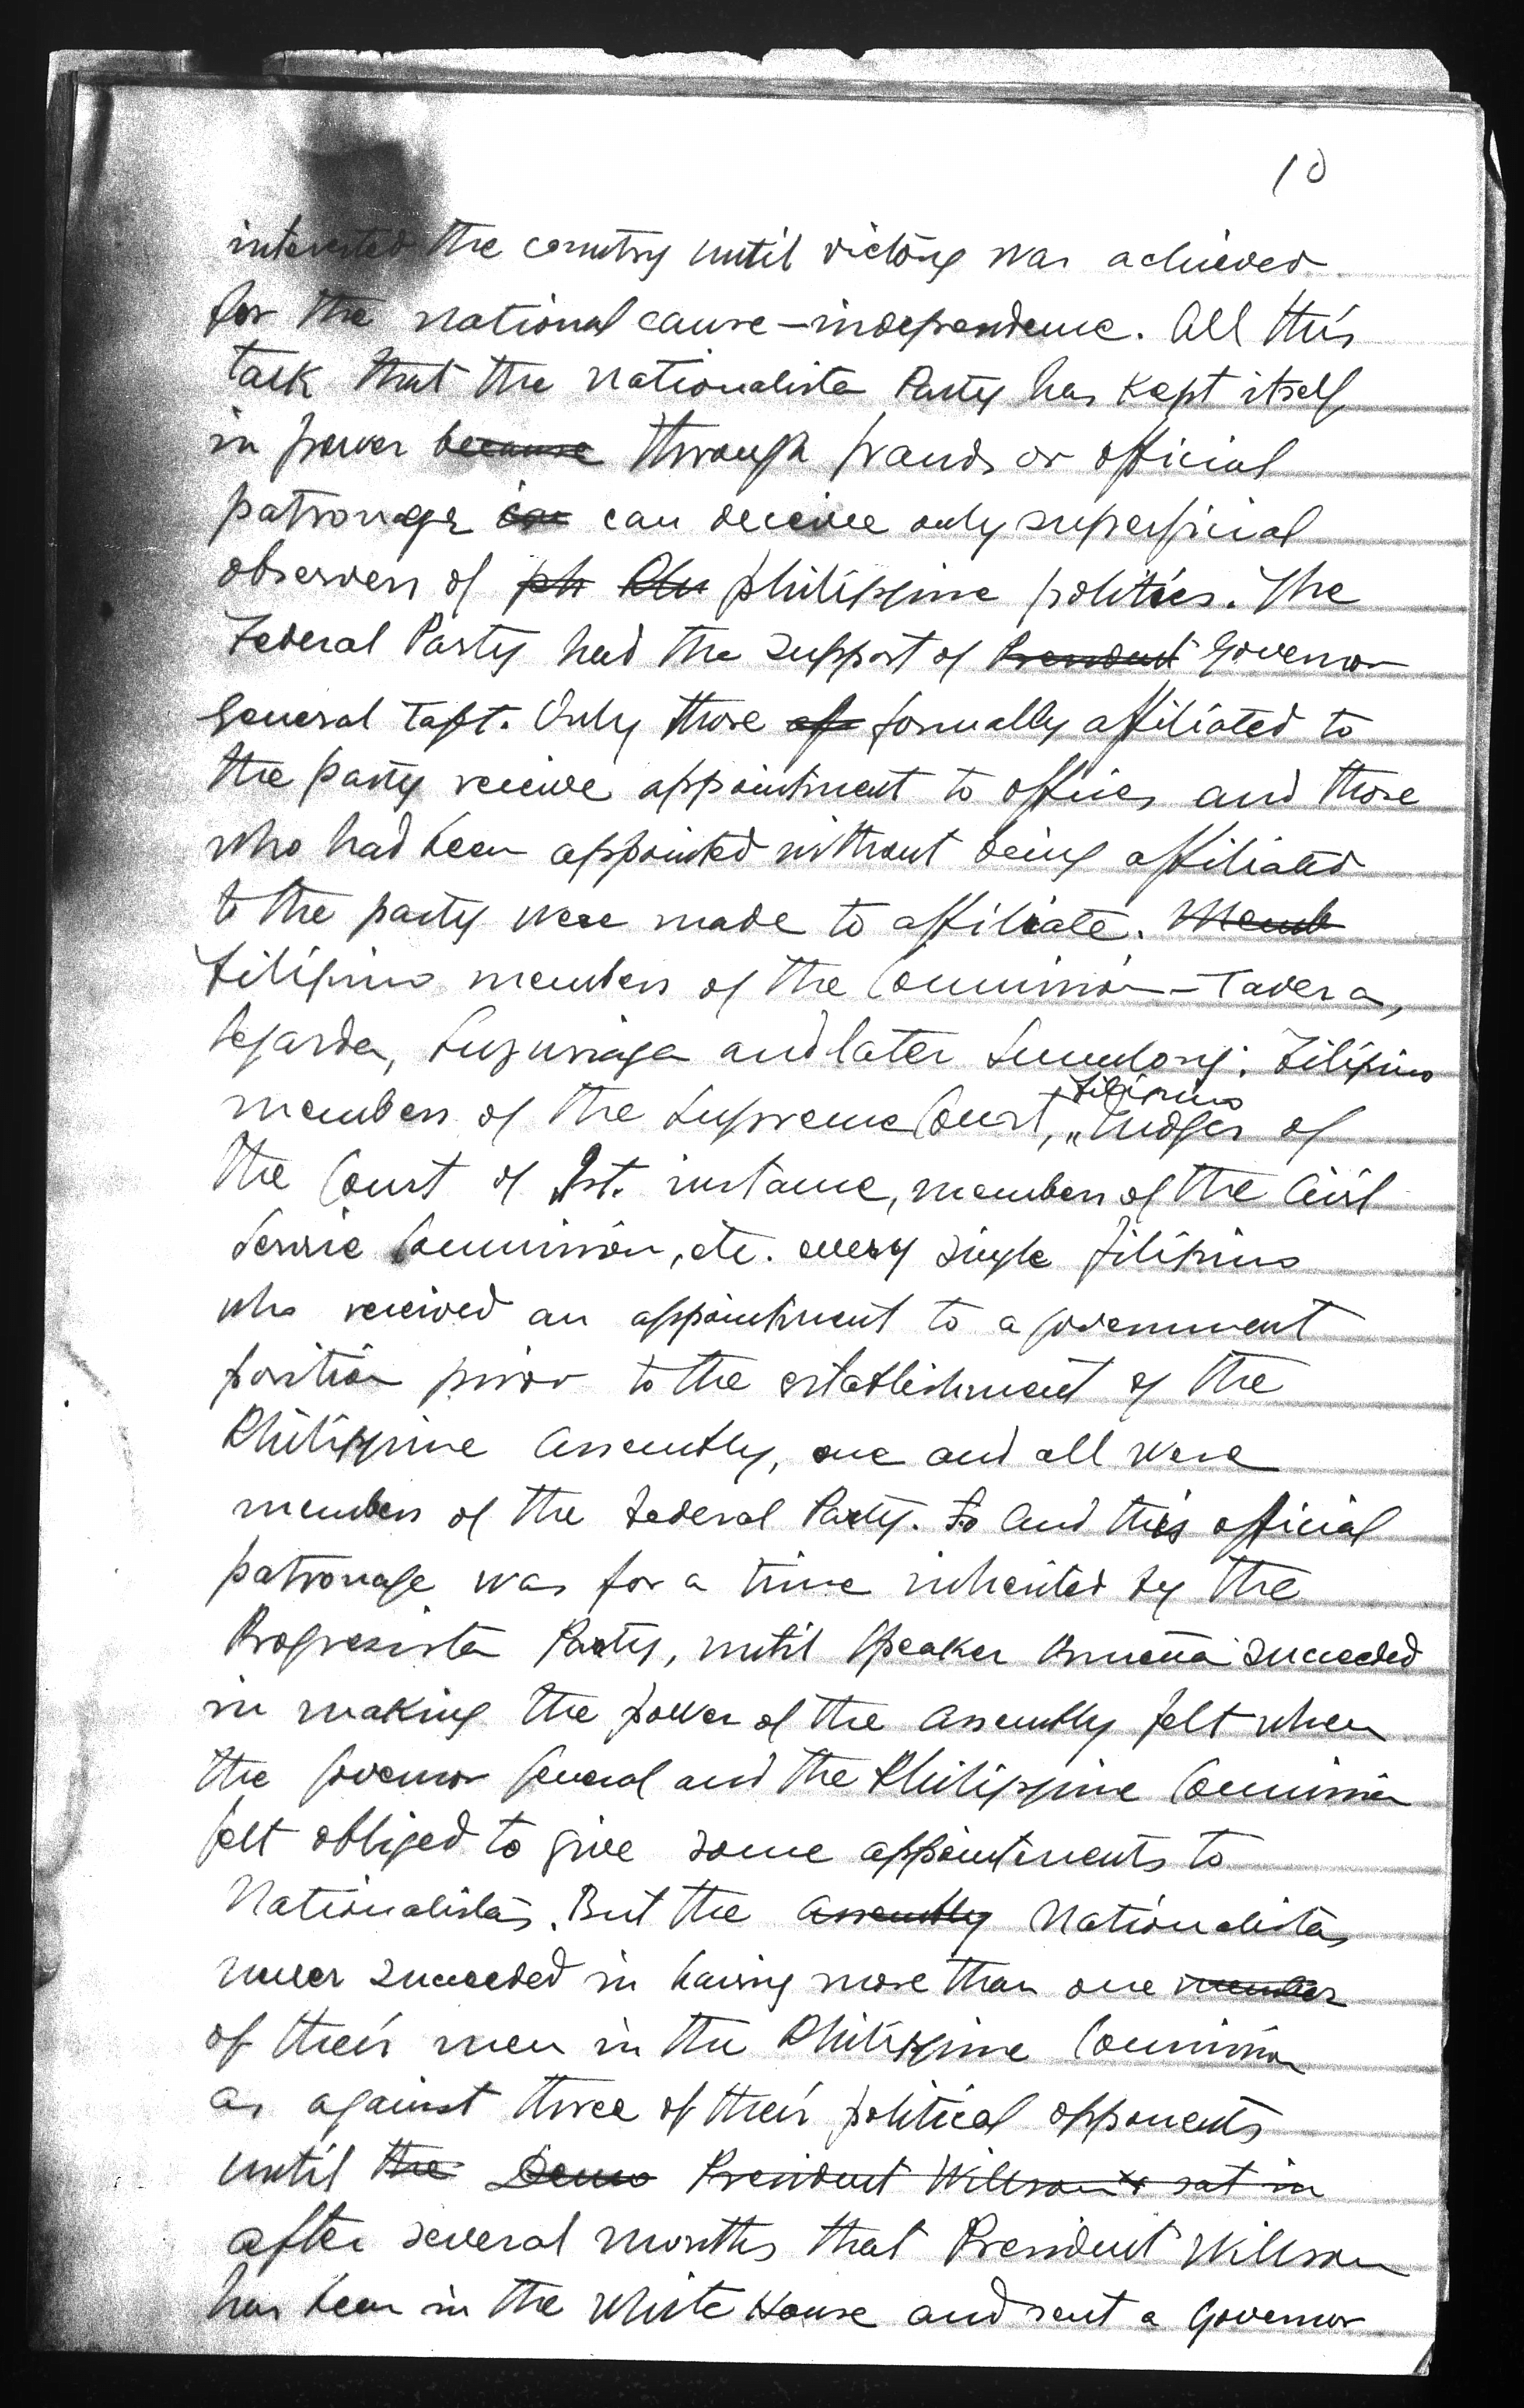 10
interested the country until victory was achieved
for the national cause—independence. All this
talk that the Nationalista Party has kept itself
in power because through frauds or official
patronage can deceive only superficial
observers of ph Phi philippine politics. The
Federal Party had the support of President Governor
General Taft. Only those af formally affiliated to
the party receive appointment to offices and those
who had been appointed without being affiliated
to the party were made to affiliate. Memb
Filipino members of the Commission—Tavera,
Legarda, Luzuriaga and later Sumulong; Filipino
members of the Supreme Court, Filipino Judges of
the Court of 1st. instance, members of the Civil
Service Commission, etc. every single filipino
who received an appointment to a government
position prior to the establishment of the
Philippine Assembly, one and all were
members of the Federal Party. So and this official
patronage was for a time inherited by the
Progresista Party, until Speaker Osmeña succeeded
in making the power of the Assembly felt when
the Governor General and the Philippine Commission
felt obliged to give some appointments to
Nationalistas. But the Assembly Nationalistas
never succeeded in having more than one member
of their men in the Philippine Commission
as against three of their political opponents
until the Demo President Willson sat in
after several months that President Willson
has been in the White House and sent a Governor